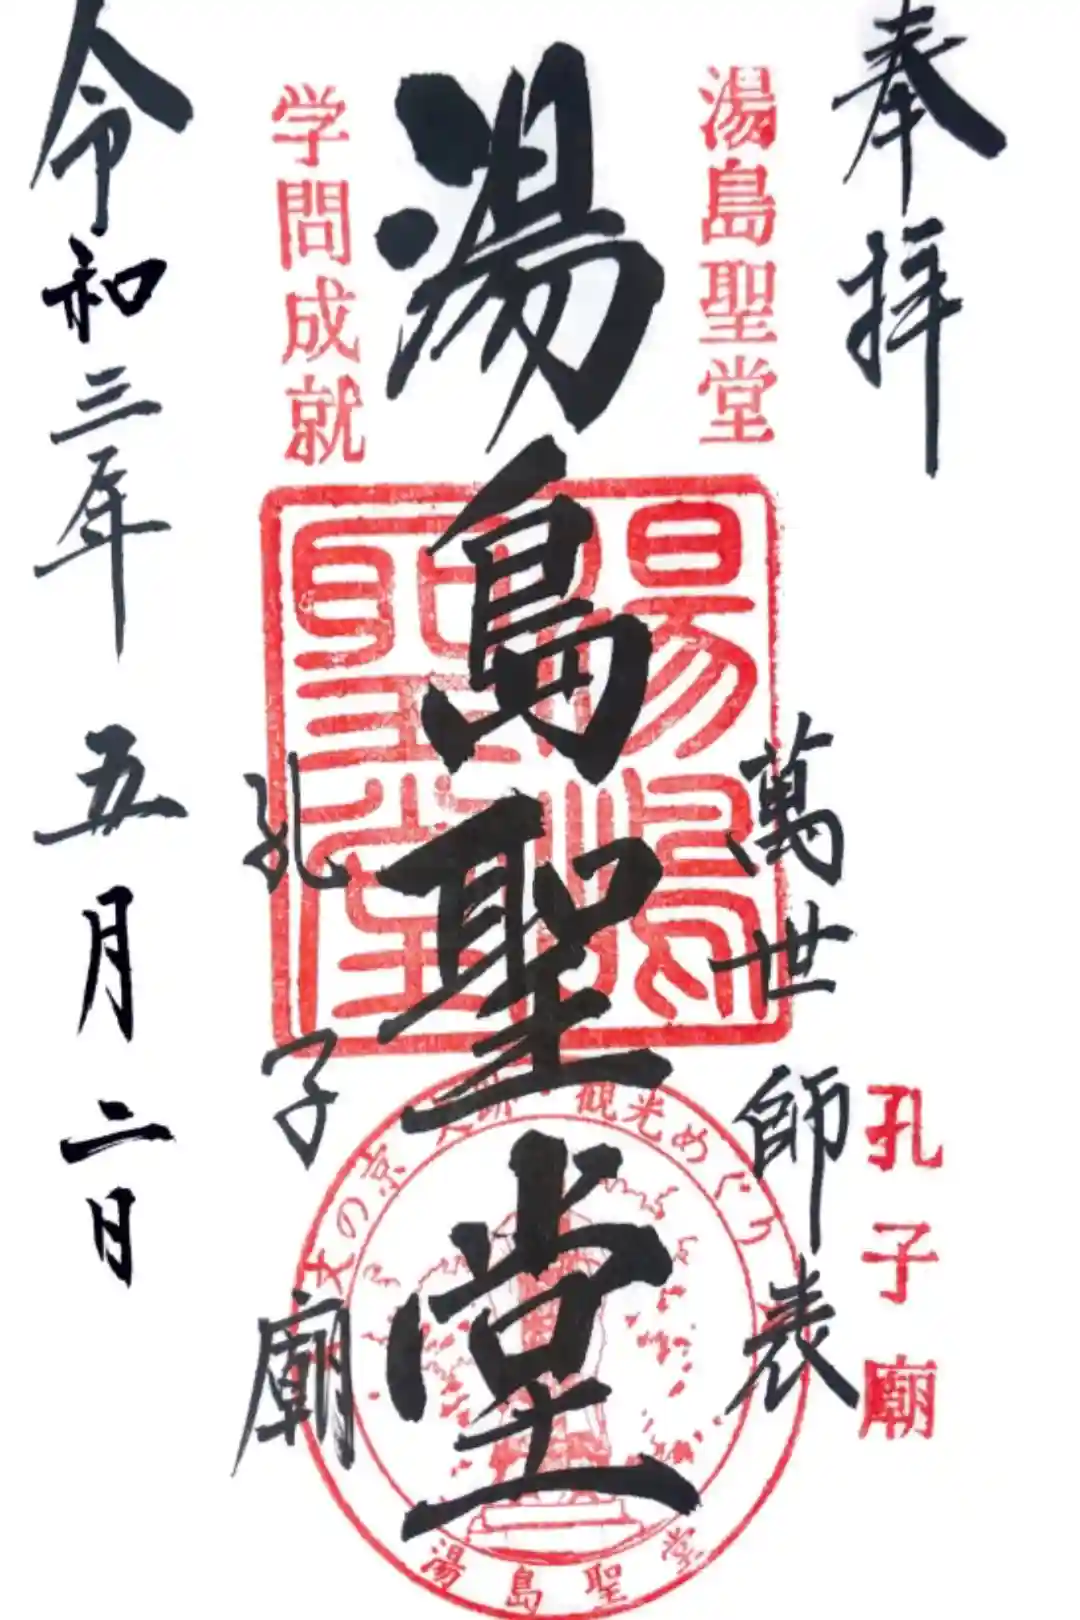 奉拝
湯島聖堂
萬世師表
孔子廟
湯島聖堂
学問成就
孔子廟
令和三年 五月二日
湯島聖堂
文の京 史跡・観光めぐり
湯島聖堂